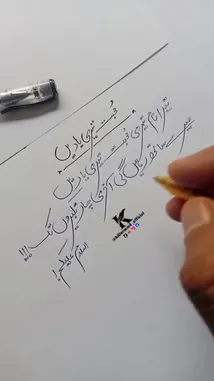 محبت تیری یادیں
تیرا نام تیری محبت تیری یادیں
میرے ساتھ رہیں گی آخری سانسوں تک!!!
السلام علیکم!
K